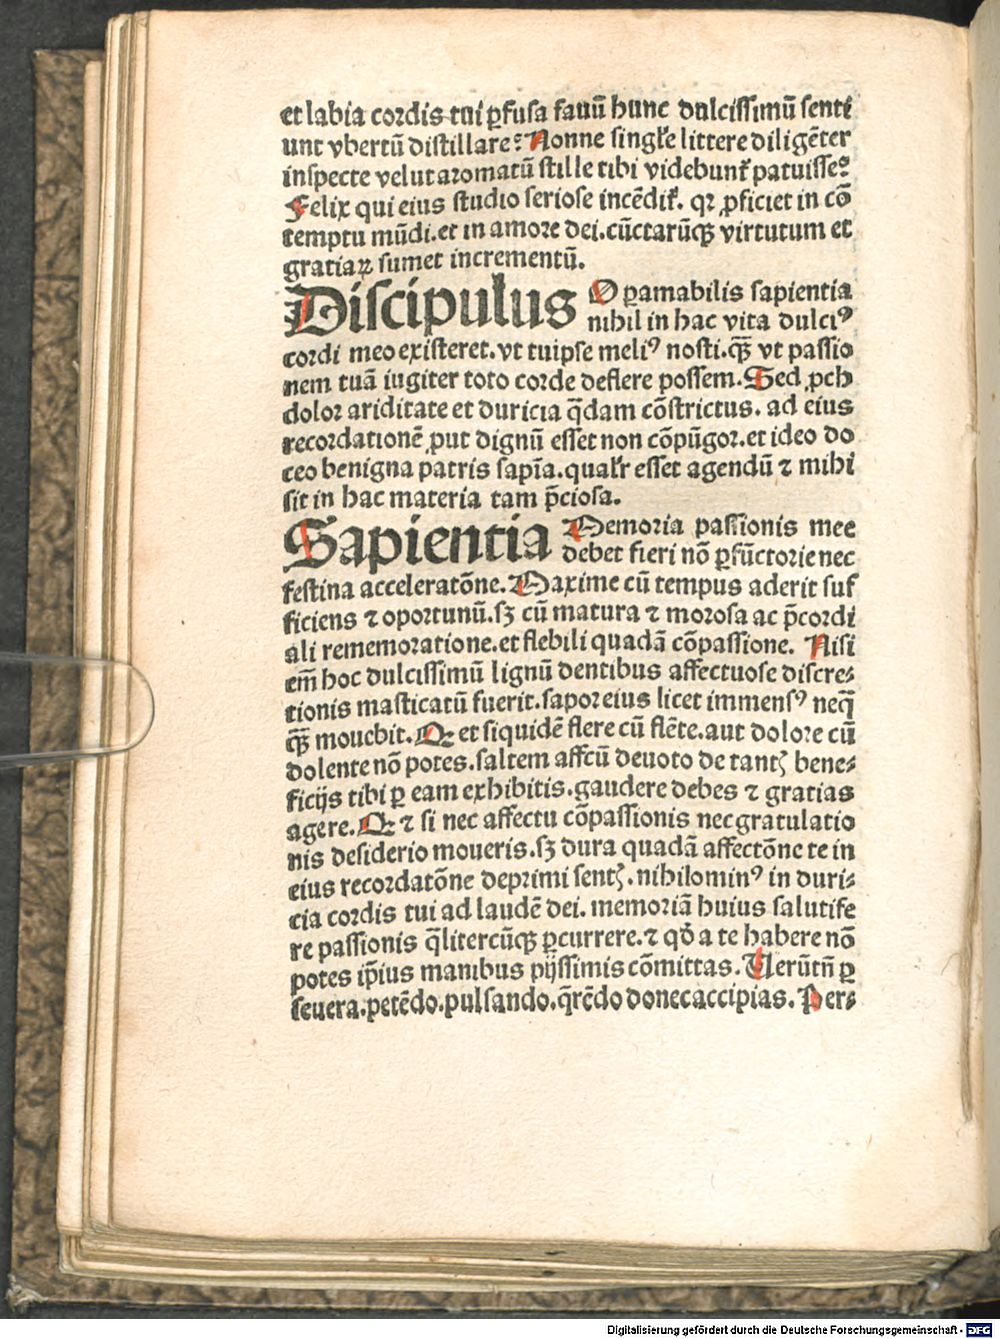 et labia cordis tui ꝑfusa fauū hunc dulcissimū senti
unt vbertū distillare? Nonne singl̓e littere diligēter
inspecte velut aromatū stille tibi videbunt᷑ patuisse?
Felix qui eius studio seriose incēdit᷑. qꝛ ꝓficiet in cō
temptu mūdi. et in amore dei. cūctarūqꝫ virtutum et
gratiaꝝ sumet incrementū.
Discipulus O ꝑamabilis sapientia
nihil in hac vita dulciꝰ
cordi meo existeret. vt tuipse meliꝰ nosti. qꝫ̄ vt passio
nem tuā iugiter toto corde deflere possem. Sed ꝓch
dolor ariditate et duricia q̄dam cōstrictus. ad eius
recordationē ꝓut dignū esset non cōpūgor. et ideo do
ceo benigna patris sapīa. qualr̓ esset agendū ⁊ mihi
sit in hac materia tam p̄ciosa.
Sapientia Memoria passionis mee
debet fieri nō ꝑfūctorie nec
festina acceleratōne. Maxime cū tempus aderit suf
ficiens ⁊ oportunū. sꝫ cū matura ⁊ morosa ac p̄cordi
ali rememoratione. et flebili quadā cōpassione. Nisi
em̄ hoc dulcissimū lignū dentibus affectuose discre-
tionis masticatū fuerit. sapor eius licet immensꝰ neqꝫ̄
qꝫ̄ mouebit. Qꝛ et siquidē flere cū flēte. aut dolore cū
dolente nō potes. saltem affcū deuoto de tantꝭ bene-
ficijs tibi ꝑ eam exhibitis. gaudere debes ⁊ gratias
agere. Qꝛ ⁊ si nec affectu cōpassionis nec gratulatio
nis desiderio moueris. sꝫ dura quadā affectōne te in
eius recordatōne deprimi sentꝭ. nihilominꝰ in duri-
cia cordis tui ad laudē dei. memoriā huius salutife
re passionis q̄litercūqꝫ ꝑcurrere. ⁊ qd̄ a te habere nō
potes ip̄ius manibus pijssimis cōmittas. Uerūtn̄ ꝑ
seuera. petēdo. pulsando. q̄rēdo donec accipias. Per-
Digitalisierung gefördert durch die Deutsche Forschungsgemeinschaft - DFG